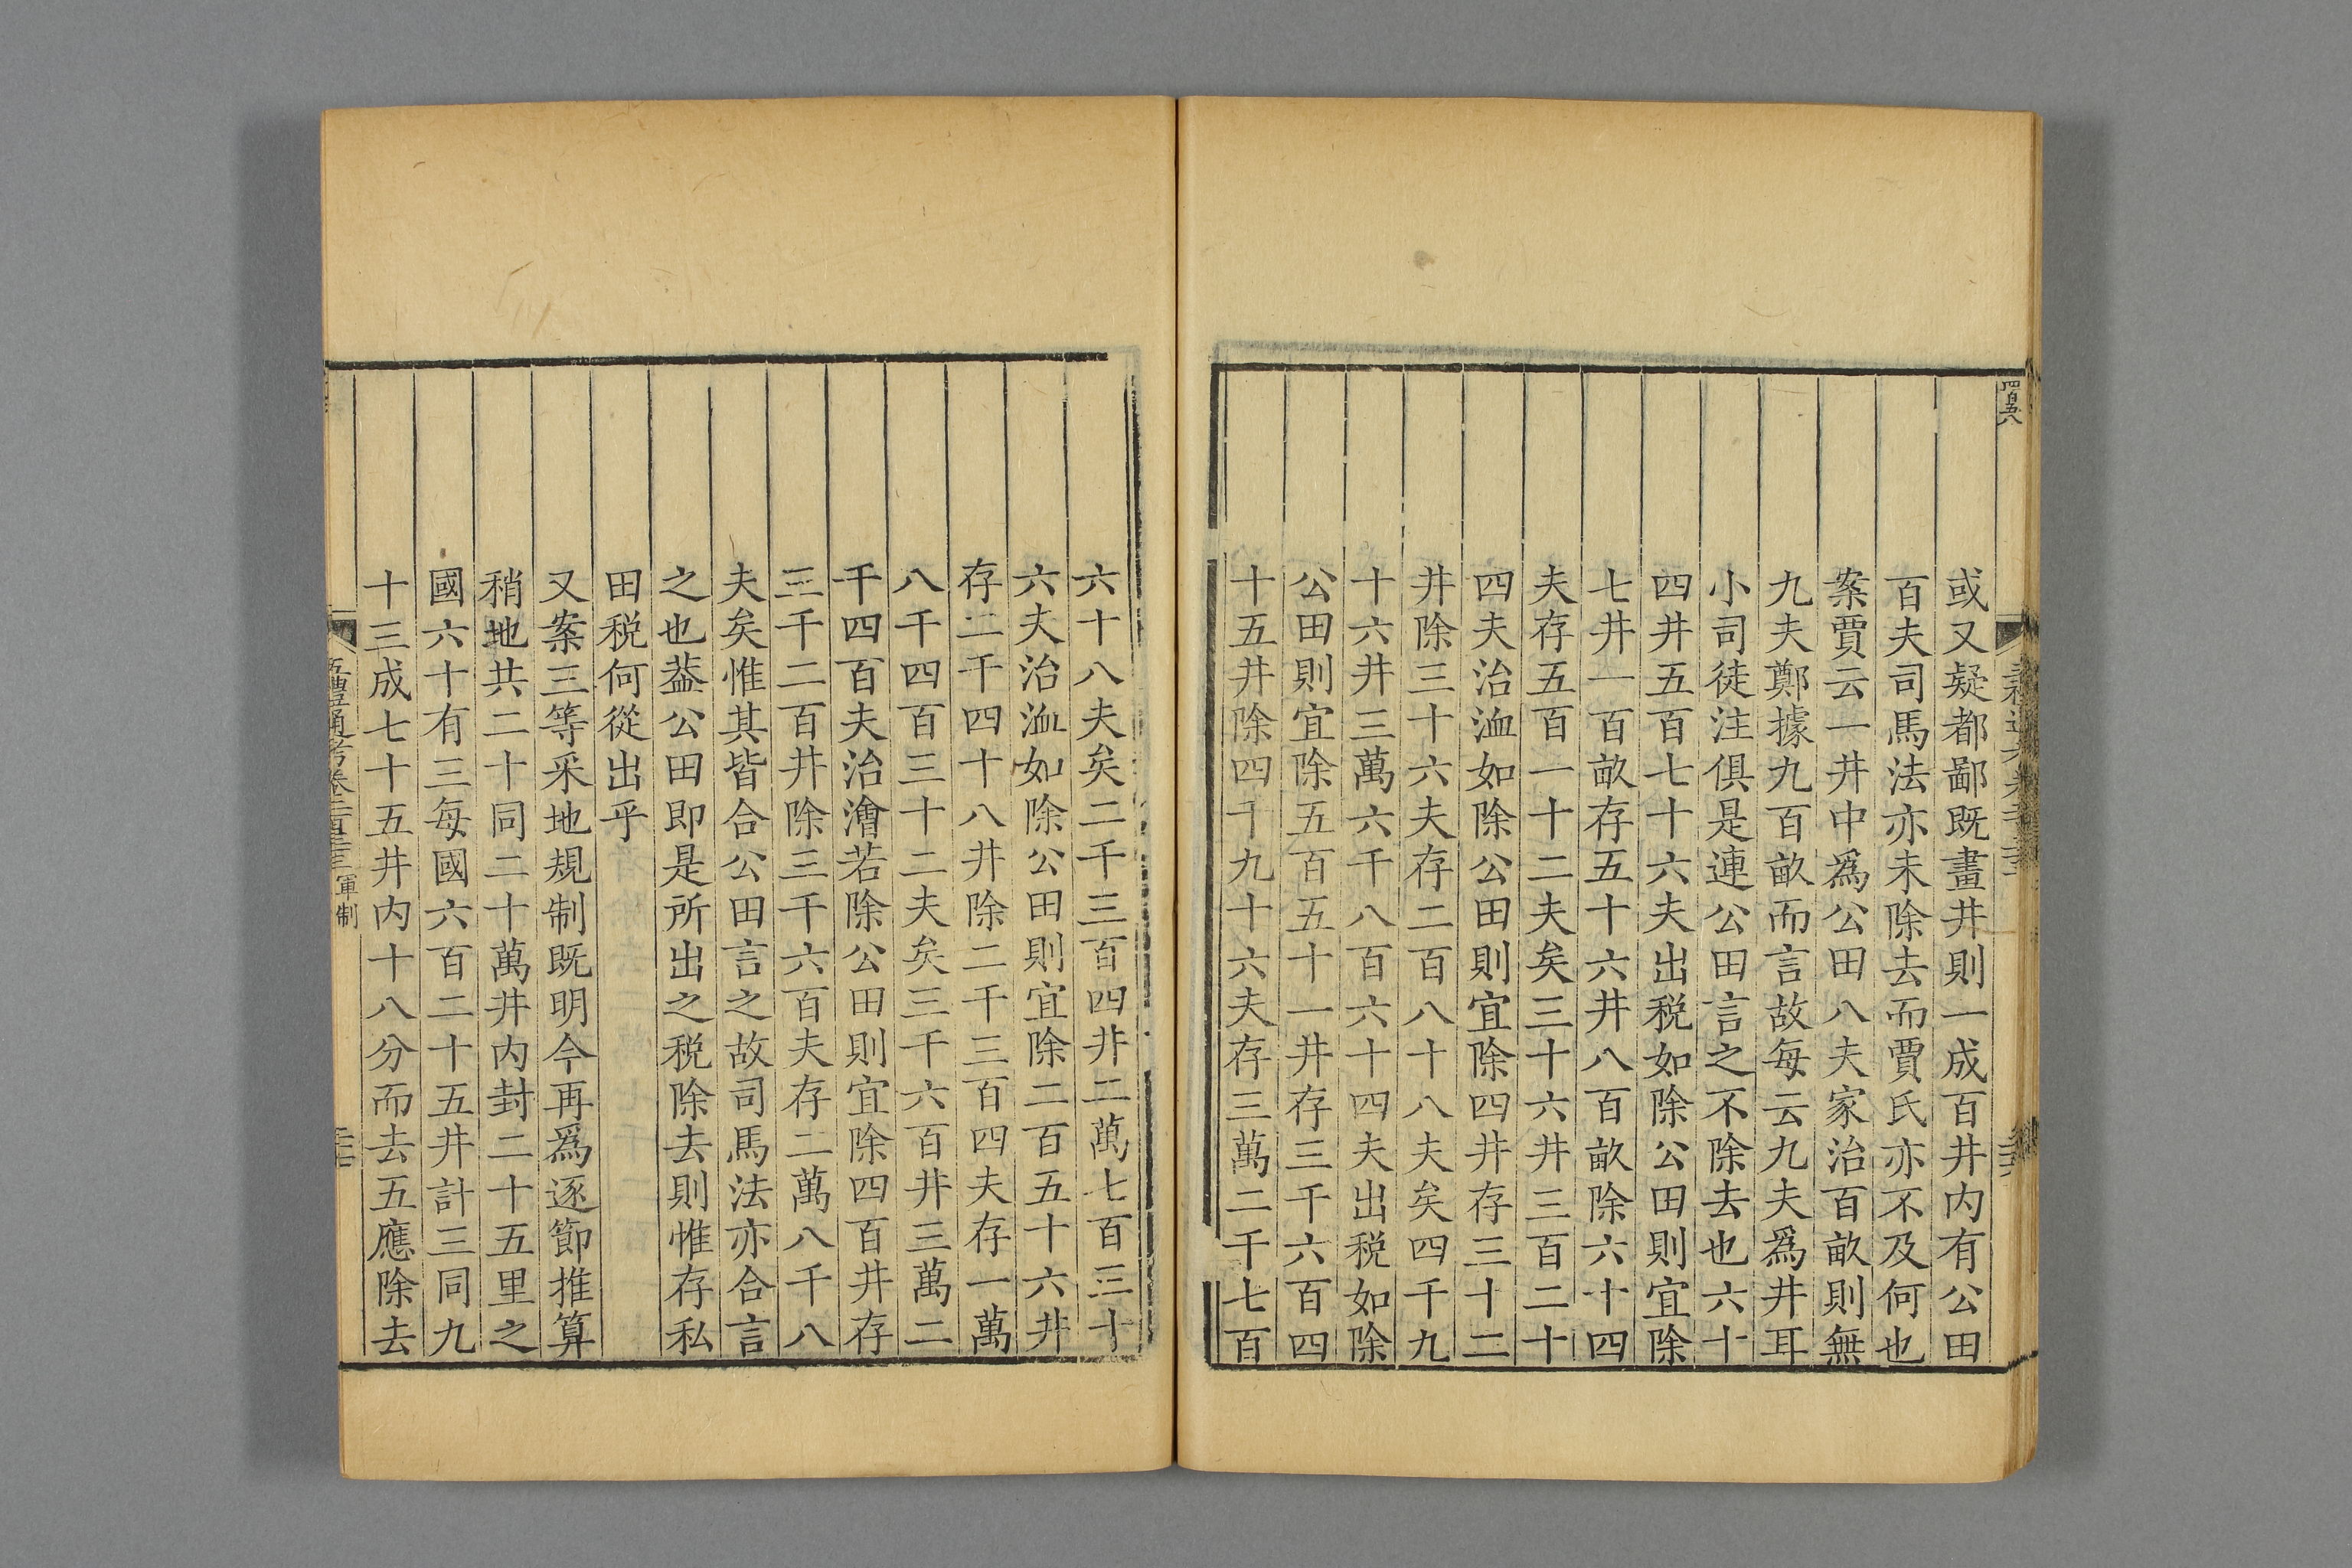 或又疑都鄙既畫井則一成百井内有公田
百夫司馬法亦未除去而賈氏亦不及何也
案賈云一井中爲公田八夫家治百畝則無
九夫鄭據九百畝而言故每云九夫爲井耳
小司徒注俱是連公田言之不除去也六十
四井五百七十六夫出税如除公田則宜除
七井一百畝存五十六井八百畝除六十四
夫存五百一十二夫矣三十六井三百二十
四夫治洫如除公田則宜除四井存三十二
井除三十六夫存二百八十八夫矣四千九
十六井三萬六千八百六十四夫出税如除
公田則宜除五百五十一井存三千六百四
十五井除四千九十六夫存三萬二千七百
六十八夫矣二千三百四井二萬七百三十
六夫治洫如除公田則宜除二百五十六井
存二千四十八井除二千三百四夫存一萬
八千四百三十二夫矣三千六百井三萬二
千四百夫治澮若除公田則宜除四百井存
三千二百井除三千六百夫存二萬八千八
夫矣惟其皆合公田言之故司馬法亦合言
之也葢公田即是所出之税除去則惟存私
田税何從出乎
又案三等采地規制既明今再爲逐節推算
稍地共二十同二十萬井内封二十五里之
國六十有三每國六百二十五井計三同九
十三成七十五井内十八分而去五應除去
五禮通考卷二百三十三 軍制